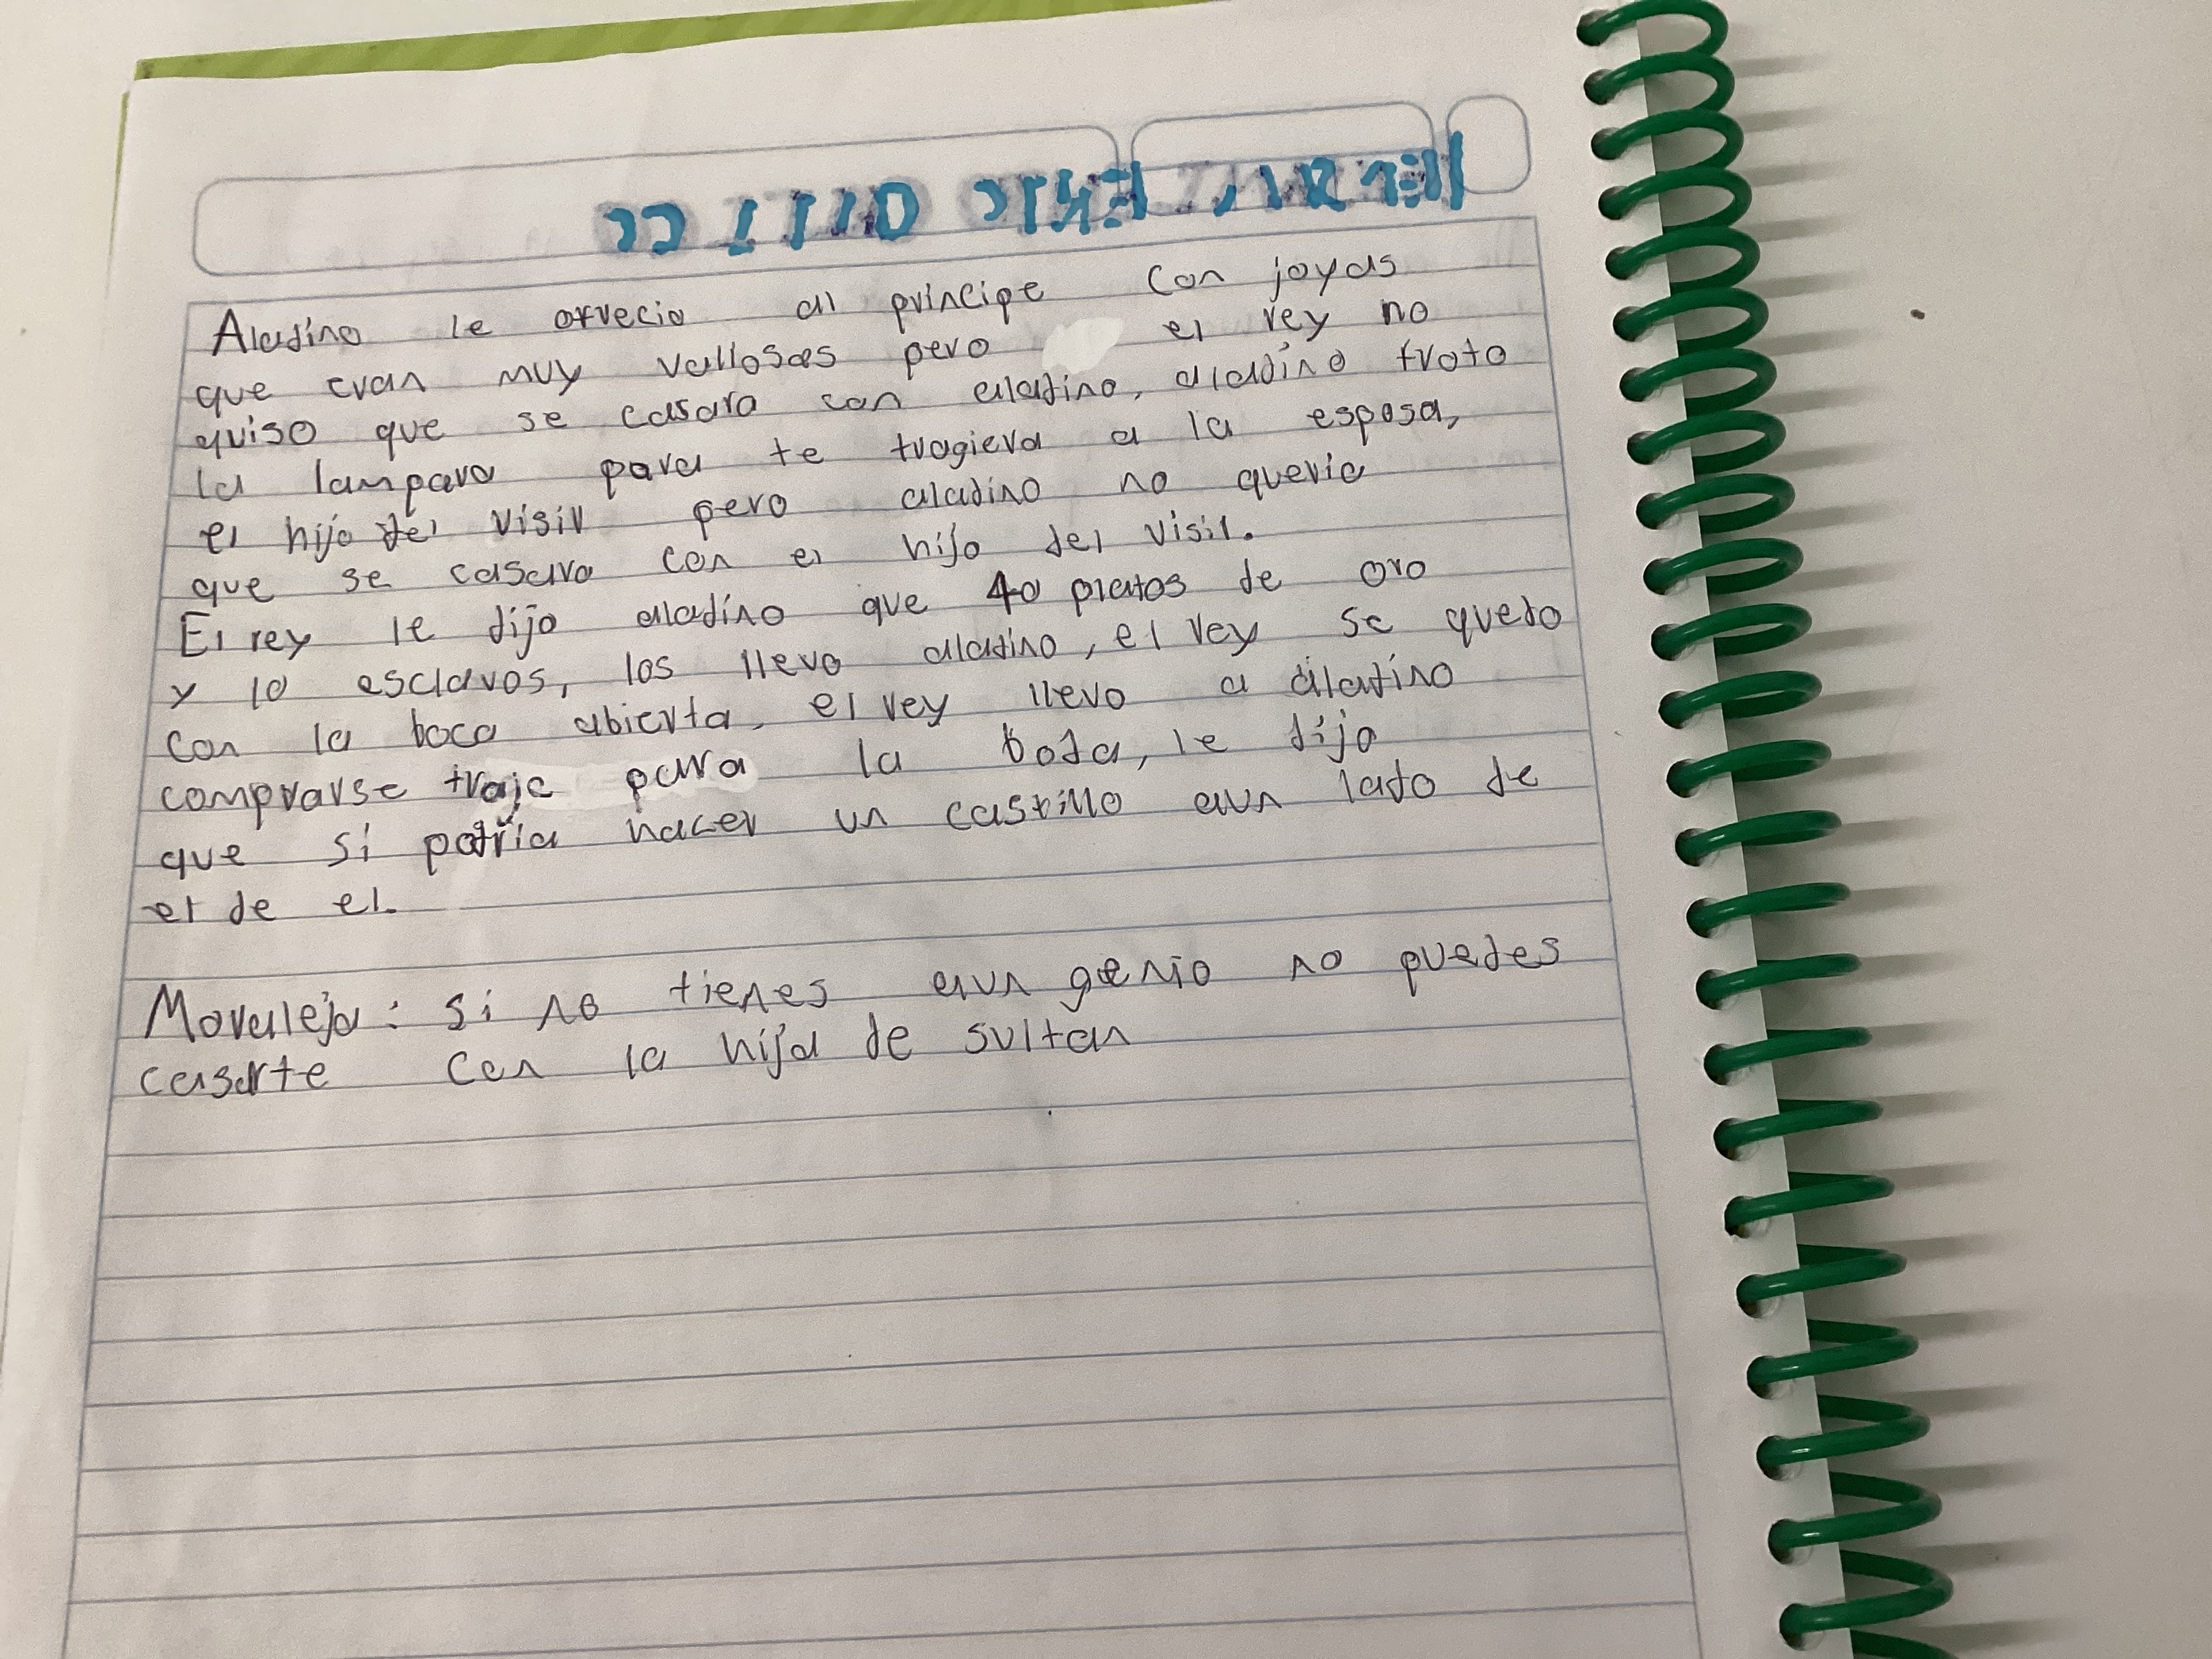 Aladino le ofrecio al principe con joyas
que eran muy vallosas pero el rey no
quiso que se casara con aladino, aladino froto
la lampara para te tragiera a la esposa,
el hijo del visir pero aladino no queria
que se casara con el hijo del visir.
El rey le dijo aladino que 40 platos de oro
y 10 esclavos, los llevo aladino, el rey se quedo
con la boca abierta, el rey llevo a aladino
comprarse traje para la boda, le dijo
que si podria hacer un castillo aun lado de
el de el.
Moraleja: si no tienes aun genio no puedes
casarte con la hija de sultan